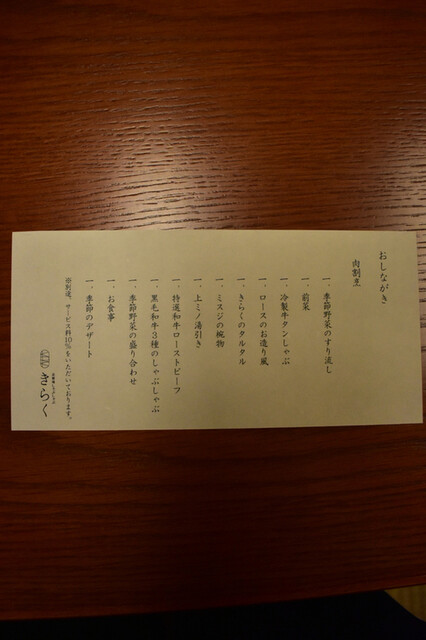 おしながき
肉割烹
一、季節野菜のすり流し
一、前菜
一、冷製牛タンしゃぶ
一、ロースのお造り風
一、きらくのタルタル
一、ミスジの椀物
一、上ミノ湯引き
一、特選和牛ローストビーフ
一、黒毛和牛3種のしゃぶしゃぶ
一、季節野菜の盛り合わせ
一、お食事
一、季節のデザート
※別途、サービス料10%をいただいております。
きらく